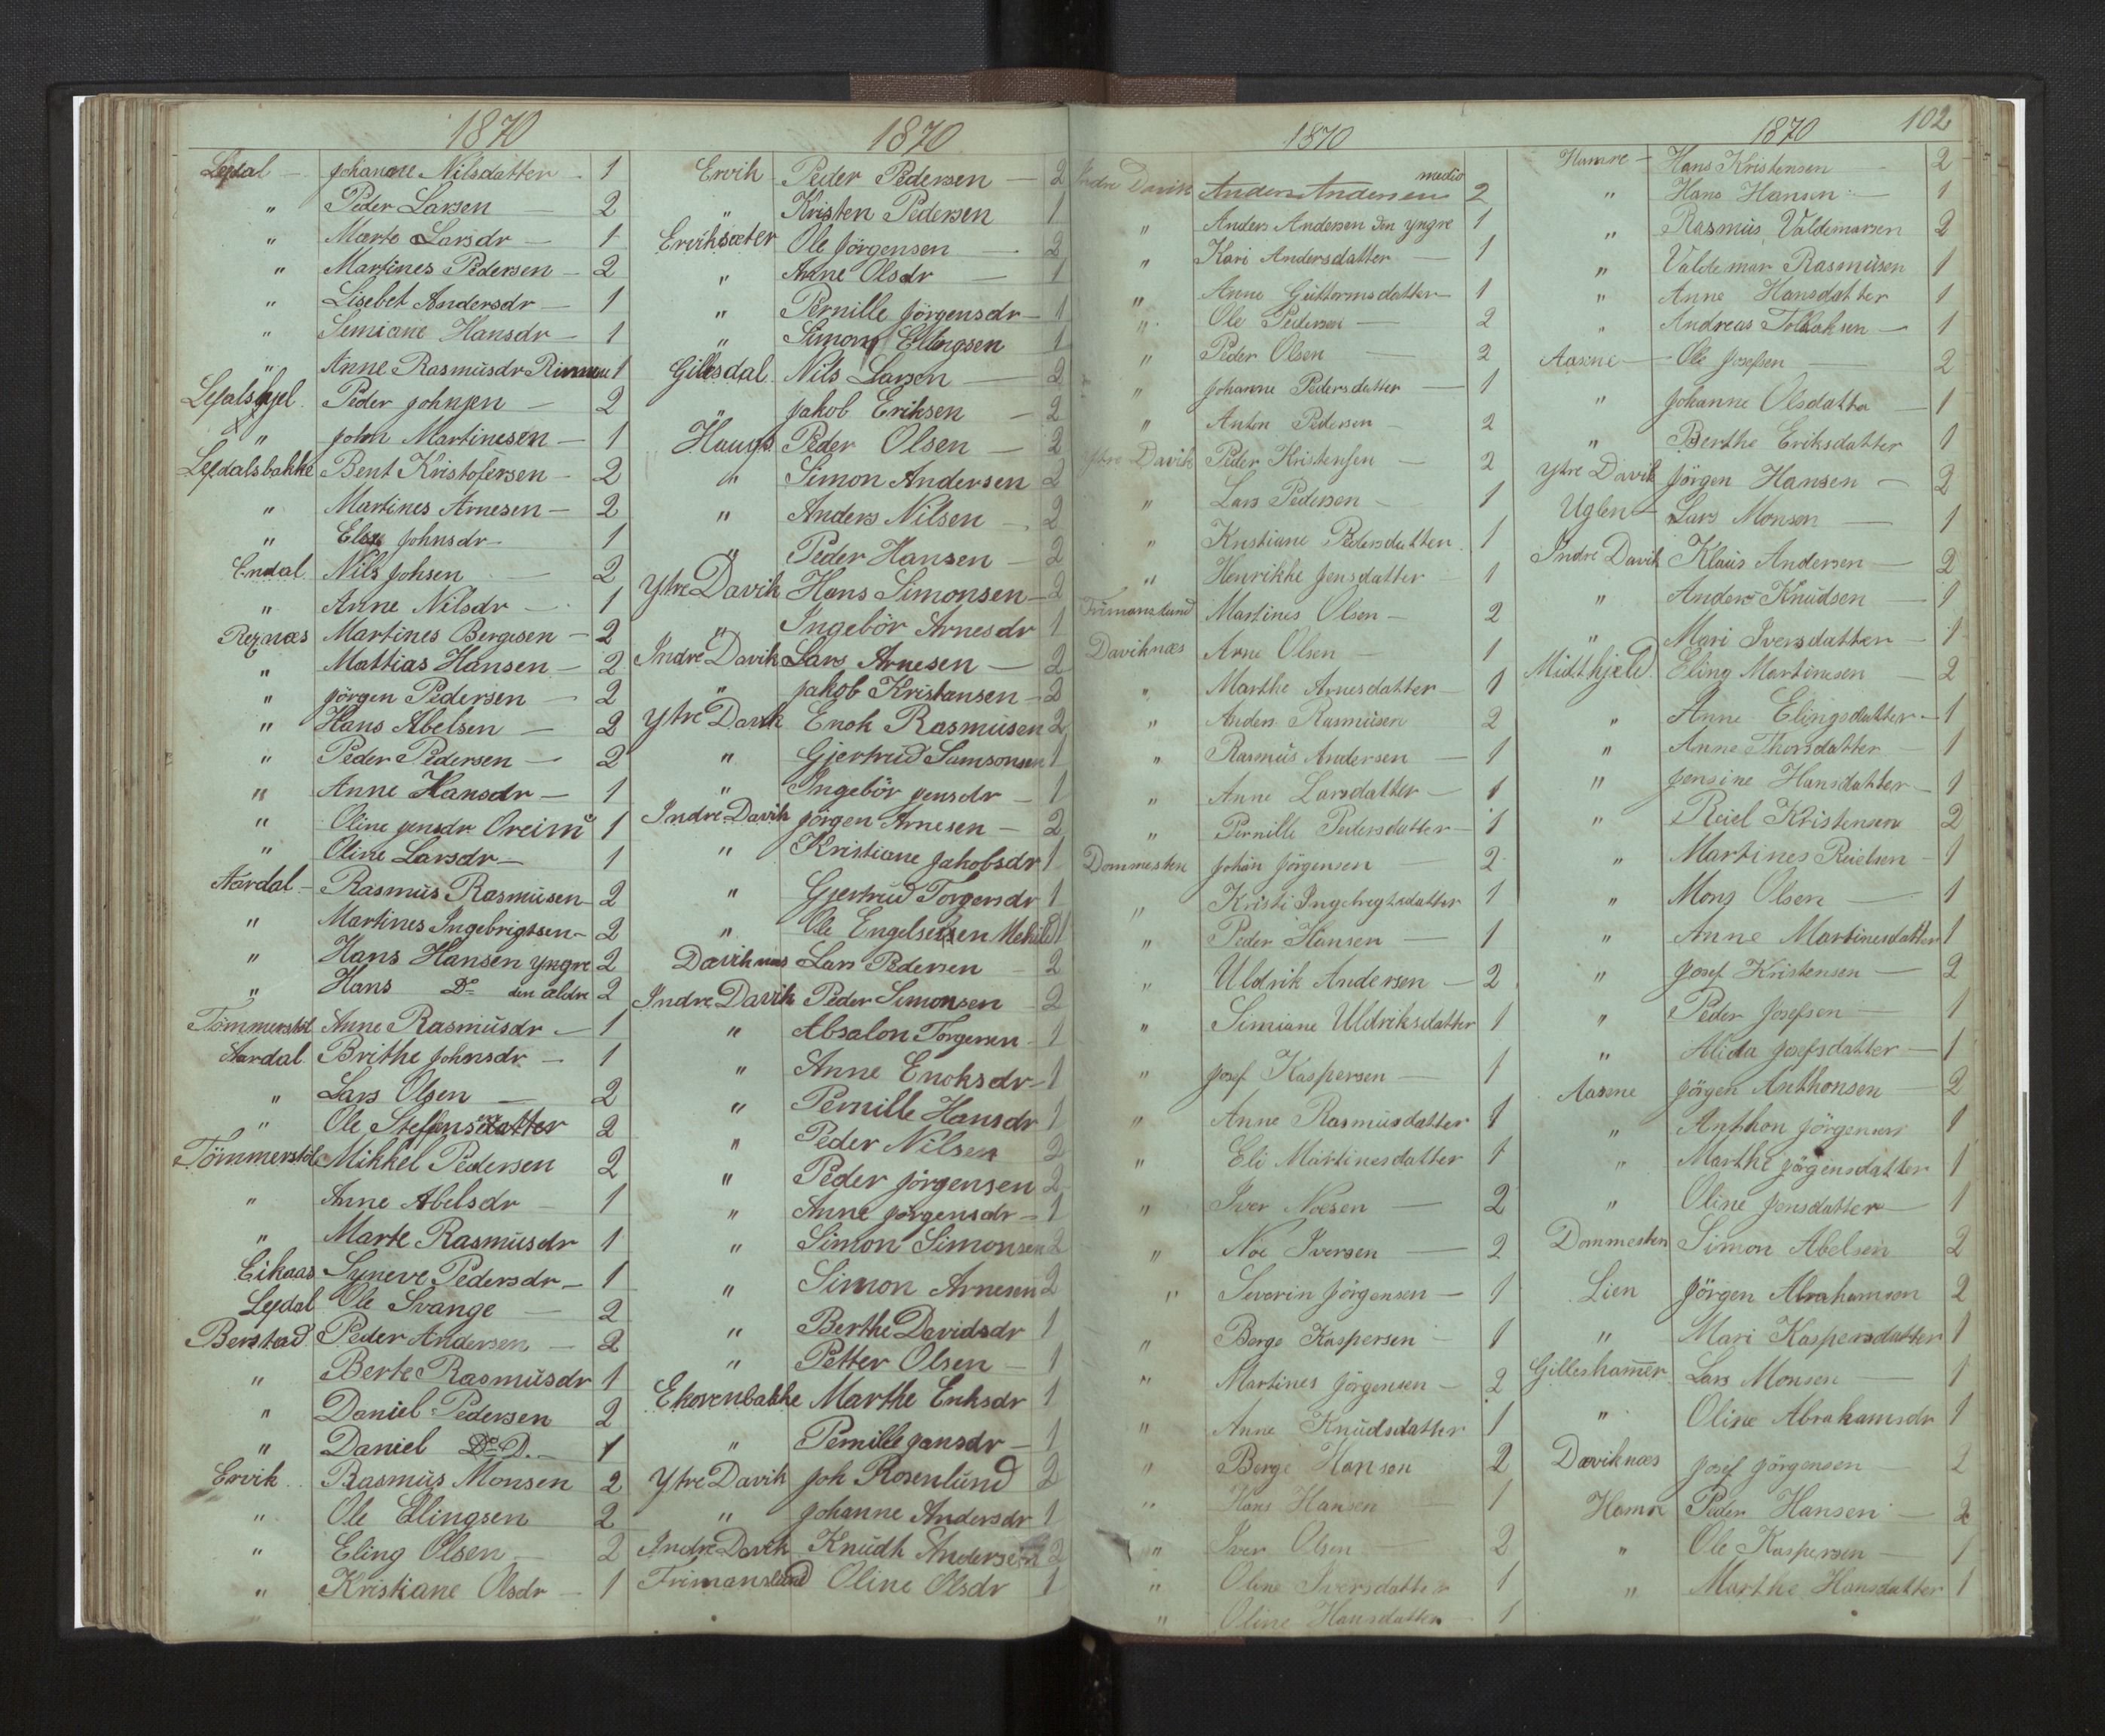 1870
Lefdal — Johanne Nilsdatter — 1
" Peder Larsen — 2
" Marte Larsdr — 1
" Martines Pedersen — 2
" Lisebet Andersdr — 1
" Simiane Hansdr — 1
" Anne Rasmusdr 1
Peder Johnsen — 2
" John Martinesen — 1
Lefdalsbakke Bent Kristofersen — 2
" Martines Arnesen — 2
" Johnsdr — 1
Endal Nils Johsen — 2
" Anne Nilsdr — 1
Martines Bergesen — 2
" Mattias Hansen — 2
" Jörgen Pedersen — 2
" Hans Abelsen — 2
" Peder Pedersen — 2
" Anne Hansdr — 1
" Oline Jensdr 1
" Oline Larsdr — 1
Aardal — Rasmus Rasmusen 2
" Martines Ingebrigtsen — 2
" Hans Hansen yngre 2
" Hans Do den ældre 2
Tömmerstöl Anne Rasmusdr — 1
Aardal Brithe Johnsdr — 1
" Lars Olsen — 2
" Ole 2
Tömmerstöl Mikkel Pedersen 2
" Anne Abelsdr — 1
" Marte Rasmusdr 1
Eikaas Syneve Pedersdr — 1
Lefdal Ole Svange — 2
Berstad Peder Andersen — 2
" Berte Rasmusdr 1
" Daniel Pedersen 2
" Daniel Do D. — 1
Ervik Rasmus Monsen 2
" Ole Elingsen 2
" Eling Olsen — 2
" Kristiane Olsdr — 1
1870
Ervik Peder Pedersen — 2
" Kristen Pedersen 1
Erviksæter Ole Jörgensen — 2
" Anne Olsdr — 1
" Pernille Jörgensdr — 1
" Simon Ellingsen 1
Gillesdal Nils Larsen — 2
" Jakob Eriksen — 2
Haugs Peder Olsen — 2
" Simon Andersen 2
" Anders Nilsen — 2
" Peder Hansen — 2
Ytre Davik Hans Simonsen — 2
" Ingebör Arnesdr 1
Indre Davik Lars Arnesen — 2
" Jakob Kristansen — 2
Ytre Davik Enok Rasmusen 2
" Gjertrud Samsonsen 1
" Ingebör Jensdr — 1
Indre Davik Jörgen Arnesen — 2
" Kristiane Jakobsdr 1
" Gjertrud Torgersdr 1
" Ole 1
Daviknæs Lars Pedersen — 2
Indre Davik Peder Simonsen — 2
" Absalon Torgersen — 1
" Anne Enoksdr — 1
" Pernille Hansdr 1
" Peder Nilsen 2
" Peder Jörgensen 2
" Anne Jörgensdr — 1
" Simon Simonsen 2
" Simon Arnesen 2
" Berthe Davidsdr 1
" Petter Olsen — 1
Marthe Eriksdr 1
" Pernille Jansdr — 1
Ytre Davik Joh Rosenlund 2
" Johanne Andersdr 1
Indre Davik Knudt Andersen 2
Frimanslund Oline Olsdr 1
1870
Indre Davik Anders Andersen medio 2
" Anders Andersen den yngre 1
" Kari Andersdatter — 1
" Anne Guttormsdatter — 1
" Ole Pedersen — 2
" Peder Olsen — 2
" Johanne Pedersdatter — 1
" Anton Pedersen — 2
Ytre Davik Peder Kristensen — 2
" Lars Pedersen — 1
" Kristiane Pedersdatter 1
" Henrikke Jensdatter — 1
Frimanslund Martines Olsen — 2
Daviknæs Arne Olsen — 1
" Marthe Arnesdatter — 1
" Anders Rasmusen 2
" Rasmus Andersen — 1
" Anne Larsdatter — 1
" Pernille Pedersdatter — 1
Dommesten Johan Jörgensen — 2
" Kristi Ingebregtsdatter 1
" Peder Hansen — 1
" Uldrik Andersen — 2
" Simiane Uldriksdatter 1
" Josef Kaspersen — 1
" Anne Rasmusdatter 1
" Eli Martinesdatter 1
" Iver Noesen — 2
" Noe Iversen — 2
" Severin Jörgensen — 1
" Berge Kaspersen — 1
" Martines Jörgensen — 2
" Anne Knudsdatter 1
" Berge Hansen 2
" Hans Hansen — 1
" Iver Olsen — 2
" Oline Iversdatter 1
" Oline Hansdatter — 1
1870 102
Hamre — Hans Kristensen — 2
" Hans Hansen — 1
" Rasmus Valdemarsen 2
" Valdemar Rasmusen 1
" Anne Hansdatter 1
" Andreas — 1
Aasene — Ole Josefsen — 2
" Johanne Olsdatter — 1
" Berthe Eriksdatter 1
Ytre Davik Jörgen Hansen — 2
Uglen — Lars Monsen — 1
Indre Davik Klaus Andersen — 2
" Anders Knudsen — 1
" Mari Iversdatter — 1
Midthjeld Eling Martinesen — 2
" Anne Elingsdatter — 1
" Anne Thorsdatter — 1
" Jensine Hansdatter — 1
" Reiel Kristensen 2
" Martines Reielsen — 1
" Mons Olsen — 1
" Anne Martinesdatter 1
" Josef Kristensen — 2
" Peder Josefsen — 1
" Alida Josefsdatter — 1
Aasene Jörgen Anthonsen — 2
" Anthon Jörgensen 1
" Marthe Jörgensdatter 1
" Oline Jensdatter — 1
Dommesten Simon Abelsen 2
Lien Jörgen Abrahamsen 2
" Mari Kaspersdatter 1
Gilleshammer Lars Monsen — 1
" Oline Abrahamsdr 1
Daviknæs Josef Jörgensen — 2
Hamre Peder Hansen — 2
" Ole Kaspersen — 1
" Marthe Hansdatter 1